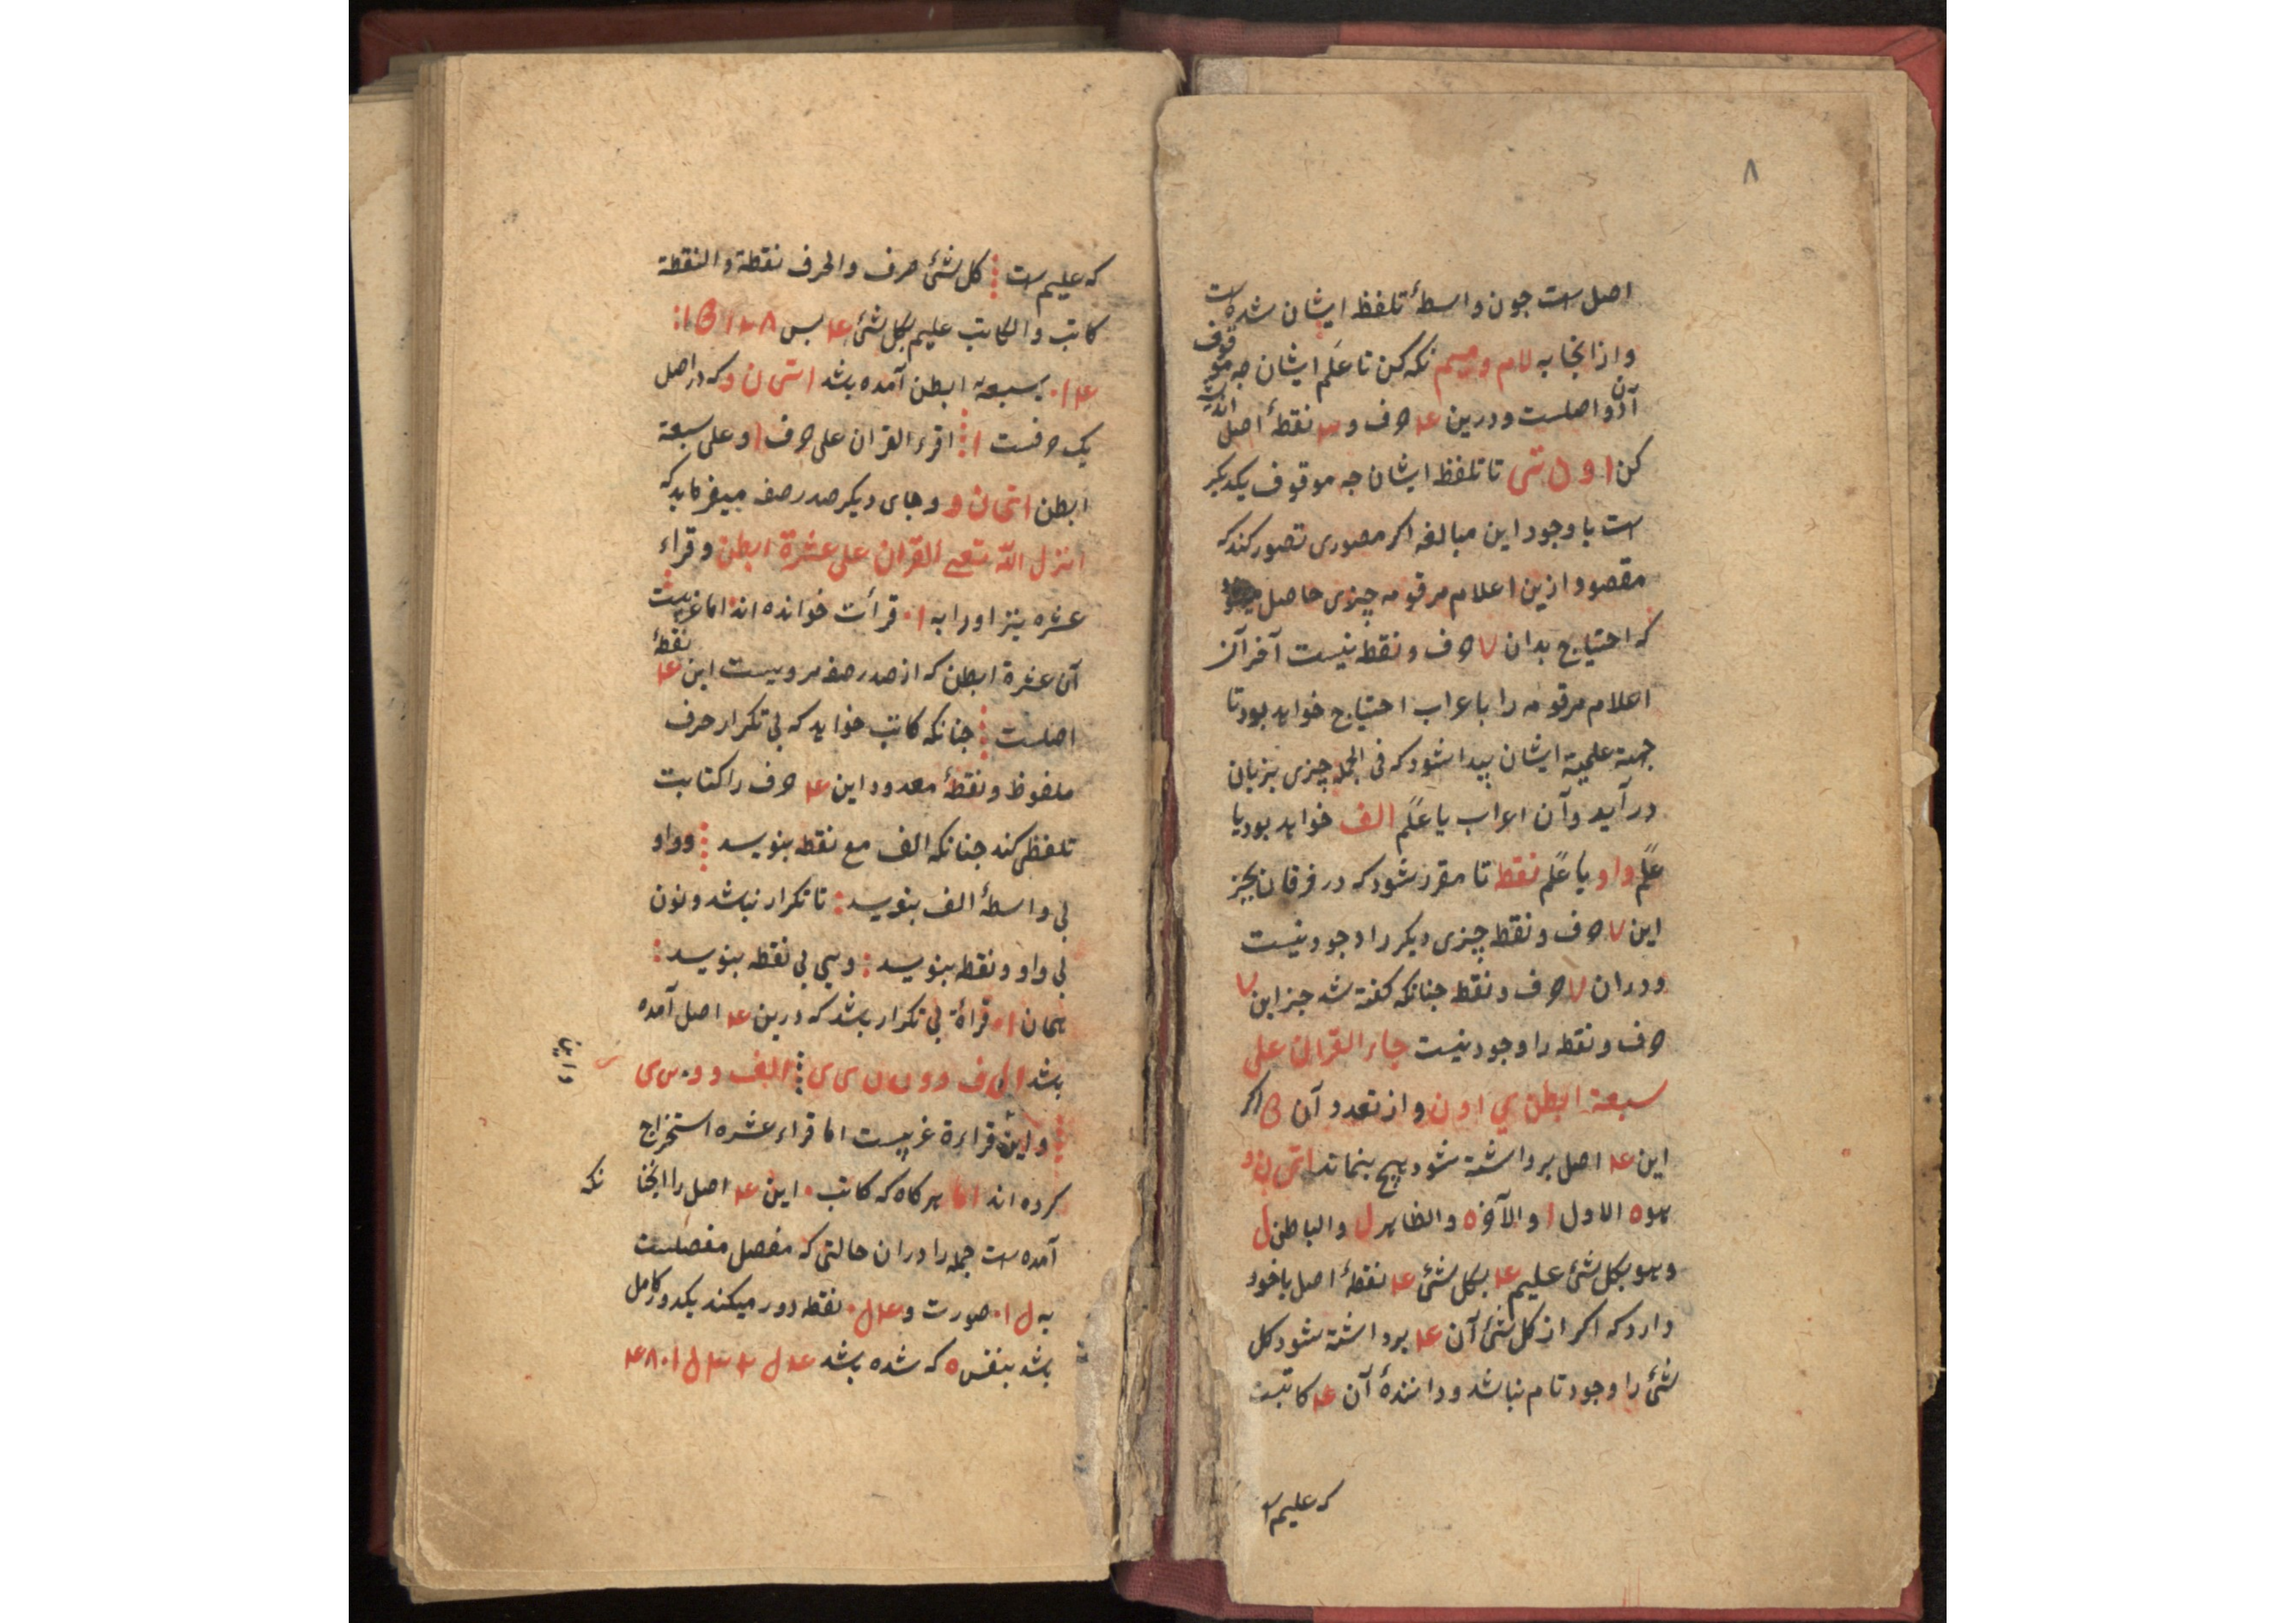 ۸
اصل است جون واسطهٔ تلفظ ایشان شده است
و از اینجا به لام و میم نکه کن تا عَلَم ایشان جه موقوف
آن دو اصلست و درین ۴ حرف و ۳ نقطهٔ اصل
کن ا و ن تی تا تلفظ ایشان جه موقوف یکدیکر
است با وجود این مبالغه اکر مصوری تصور کند که
مقصود ازین اعلام مرقومه چیزی حاصل
که احتیاج بدان ۷ حرف و نقطه نیست آخر آن
اعلام مرقومه را باعراب احتیاج خواهد بود تا
جهة علمیة ایشان پیدا شود که فی الجمله چیزی بزبان
در آید و آن اعراب یا عَلَم الف خواهد بود یا
عَلَم واو یا عَلَم نقطه تا مقرر شود که در فرقان بجز
این ۷ حرف و نقطه چیزی دیکر را وجود نیست
و در ان ۷ حرف و نقطه جنانکه کفته شد جز این ۷
حرف و نقطه را وجود نیست جاء القران علی
سبعة ابطن ی ا و ن و از تعدد آن اکر
این ۴ اصل برداشته شود هیچ بنماند
هو ه الاول ا والآخر ه والظاهر ل والباطن ل
وهو بکل شئ علیم ۴ بکل شئ ۴ نقطهٔ اصل با خود
دارد که اکر از کل شئ آن ۴ برداشته شود کل
شئ را وجود تام نباشد و دانندهٔ آن ۴ کاتبست
که علیم است
که علیم است ⁝ کل شئ حرف والحرف نقطة والنقطة
کاتب والکاتب علیم بکل شئ ۴ بس
بسبعة ابطن آمده باشد ا تی ن و که در اصل
یک حرفست ا ⁝ اقرء القران علی حرف ا وعلی سبعة
ابطن ا تی ن و و جای دیکر صدر صفه میفرماید که
انزل الله تعالی القران علی عشرة ابطن و قراء
عشره نیز او را به ۱۰ قرأت خوانده اند اما غریبست
آن عشرة ابطن که از صدر صفه مرویست این ۴ نقطهٔ
اصلست ⁝ جنانکه کاتب خواهد که بی تکرار حرف
ملفوظ و نقطهٔ معدود این ۴ حرف را کتابت
تلفظی کند جنانکه الف مع نقطه بنویسد ⁝ و واو
بی واسطهٔ الف بنویسد : تا تکرار نباشد و نون
بی واو و نقطه بنویسد : و یی بی نقطه بنویسد :
همان ۱۰ قراءة بی تکرار باشد که درین ۴ اصل آمده
باشد
و این قراءة غریبست اما قراء عشره استخراج
کرده اند اما هرکاه که کاتب این ۴ اصل را اینجا
نکه
آمده است جمله را در ان حالتی که مفصل مفصلست
به ل ۱۰ صورت و نقطه دور میکند یکدور کامل
باشد بنفس ه که شده باشد